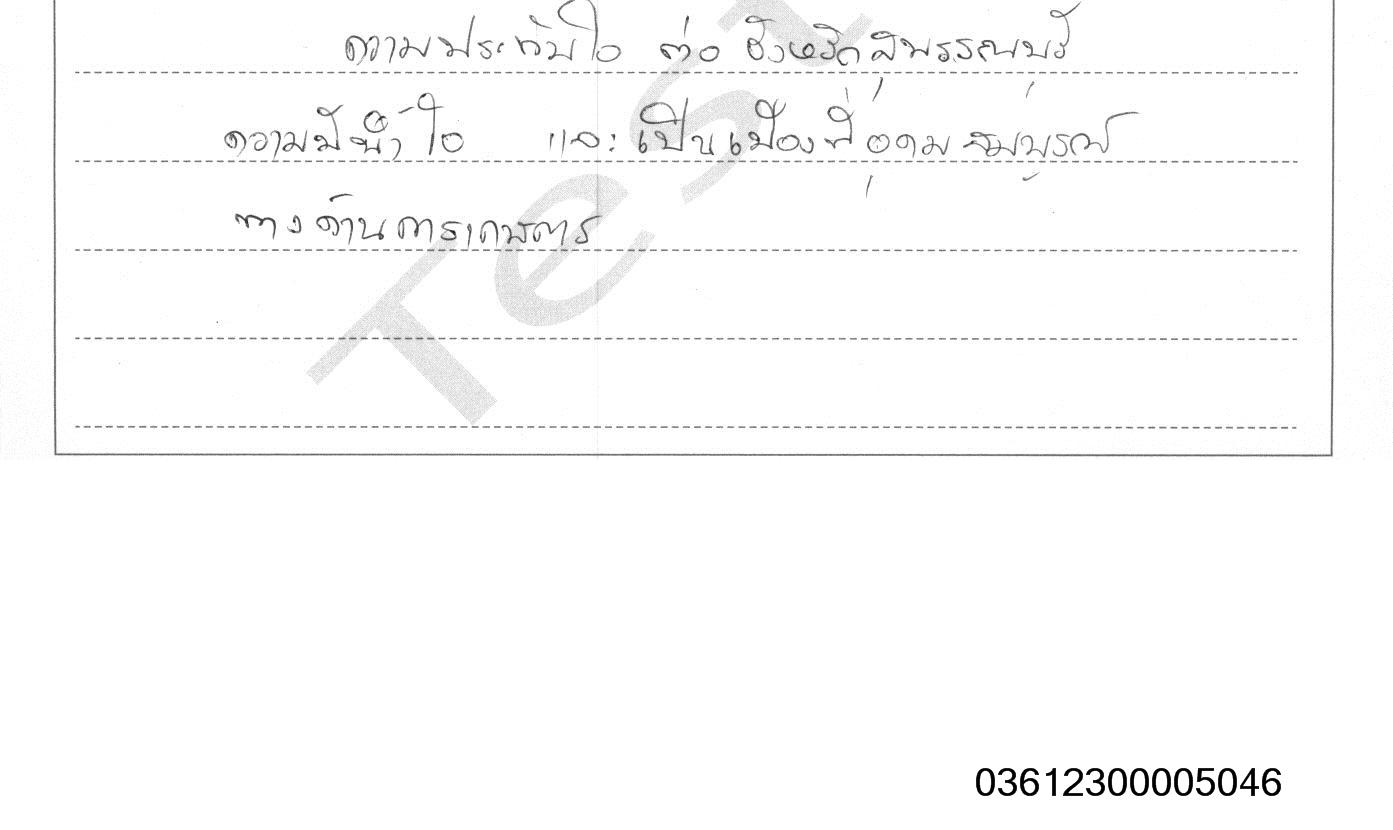 ความประทับใจ ต่อ จังหวัดสุพรรณบุรี
ความมีน้ำใจ และเป็นเมืองที่อุดมสมบูรณ์
ทางด้านการเกษตร
Test
03612300005046